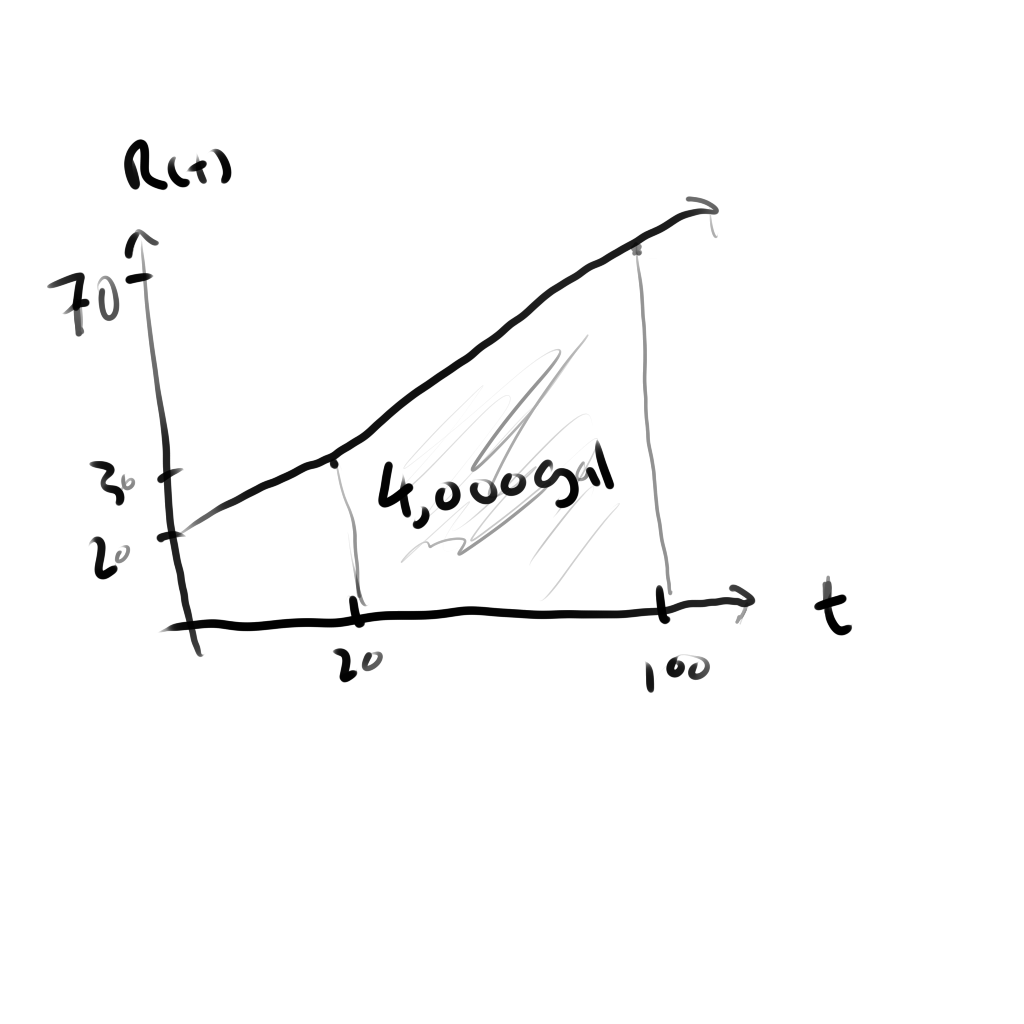 R(t)
70
30
20
4,000gal
t
20
100